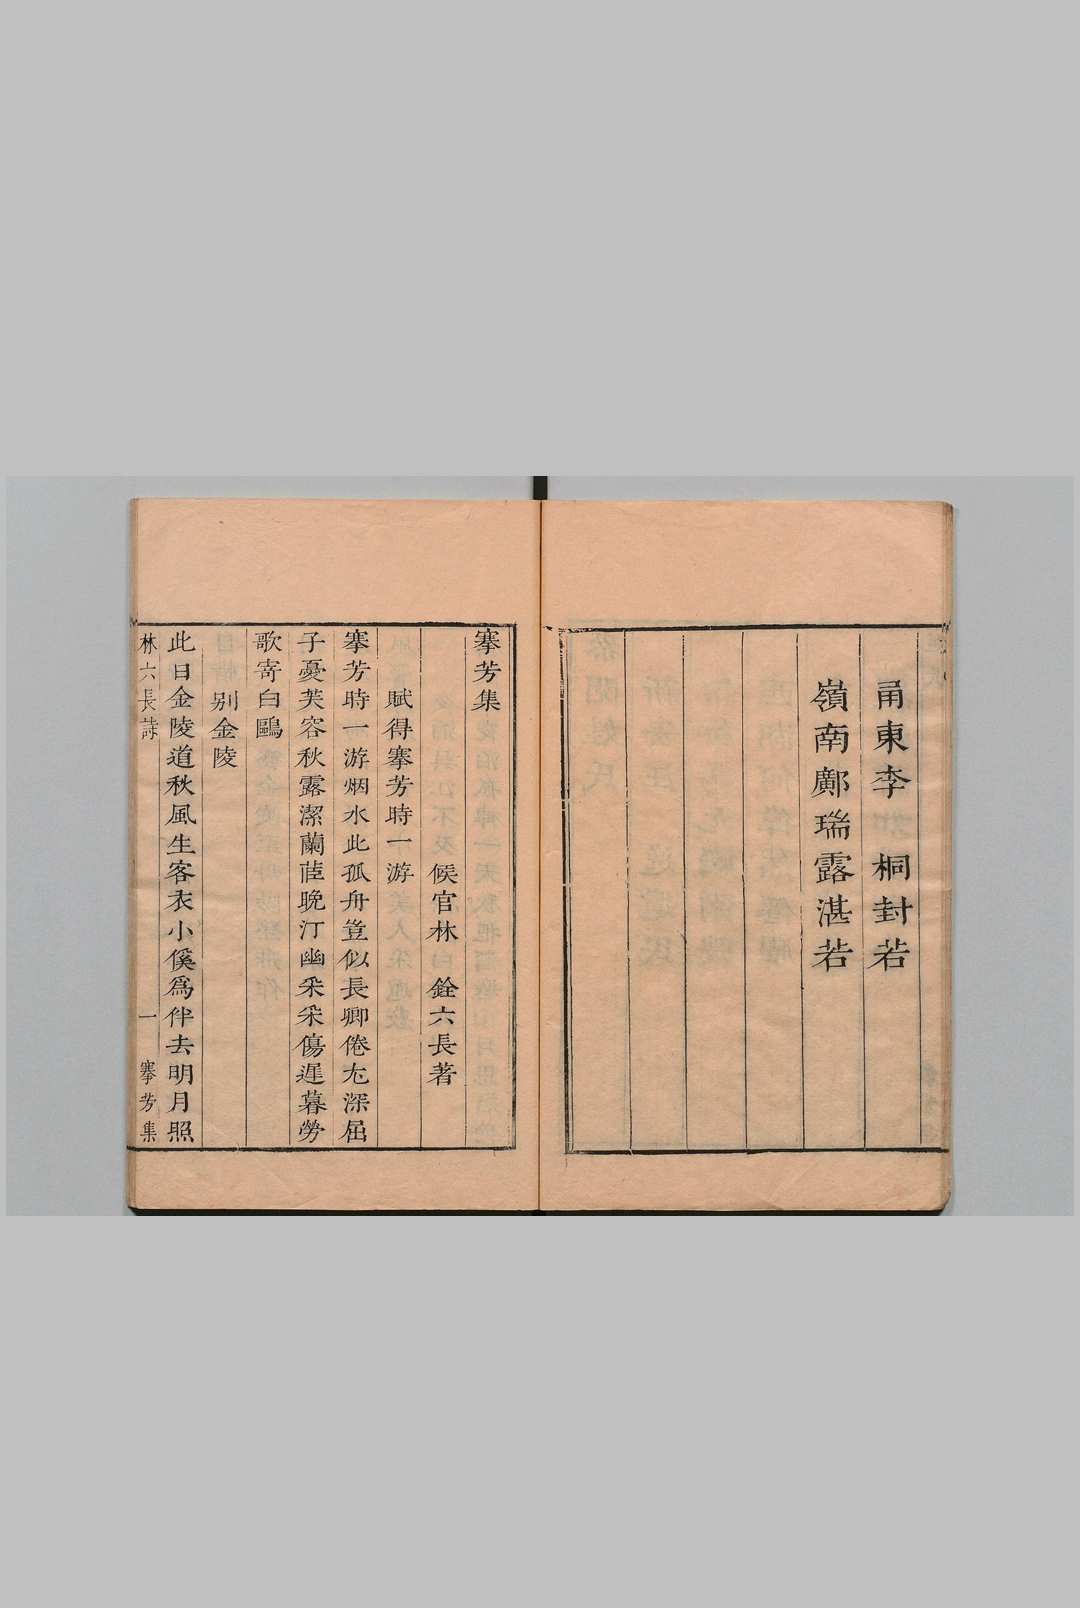 甬東李　桐封若
嶺南鄺瑞露湛若
搴芳集
候官林　銓六長著
賦得搴芳時一游
搴芳時一游烟水此孤舟豈似長卿倦尢深屈
子憂芙容秋露潔蘭茝晚汀幽采采傷遲暮勞
歌寄白鷗
别金陵
此日金陵道秋風生客衣小傒爲伴去明月照
林六長詩　一　搴芳集